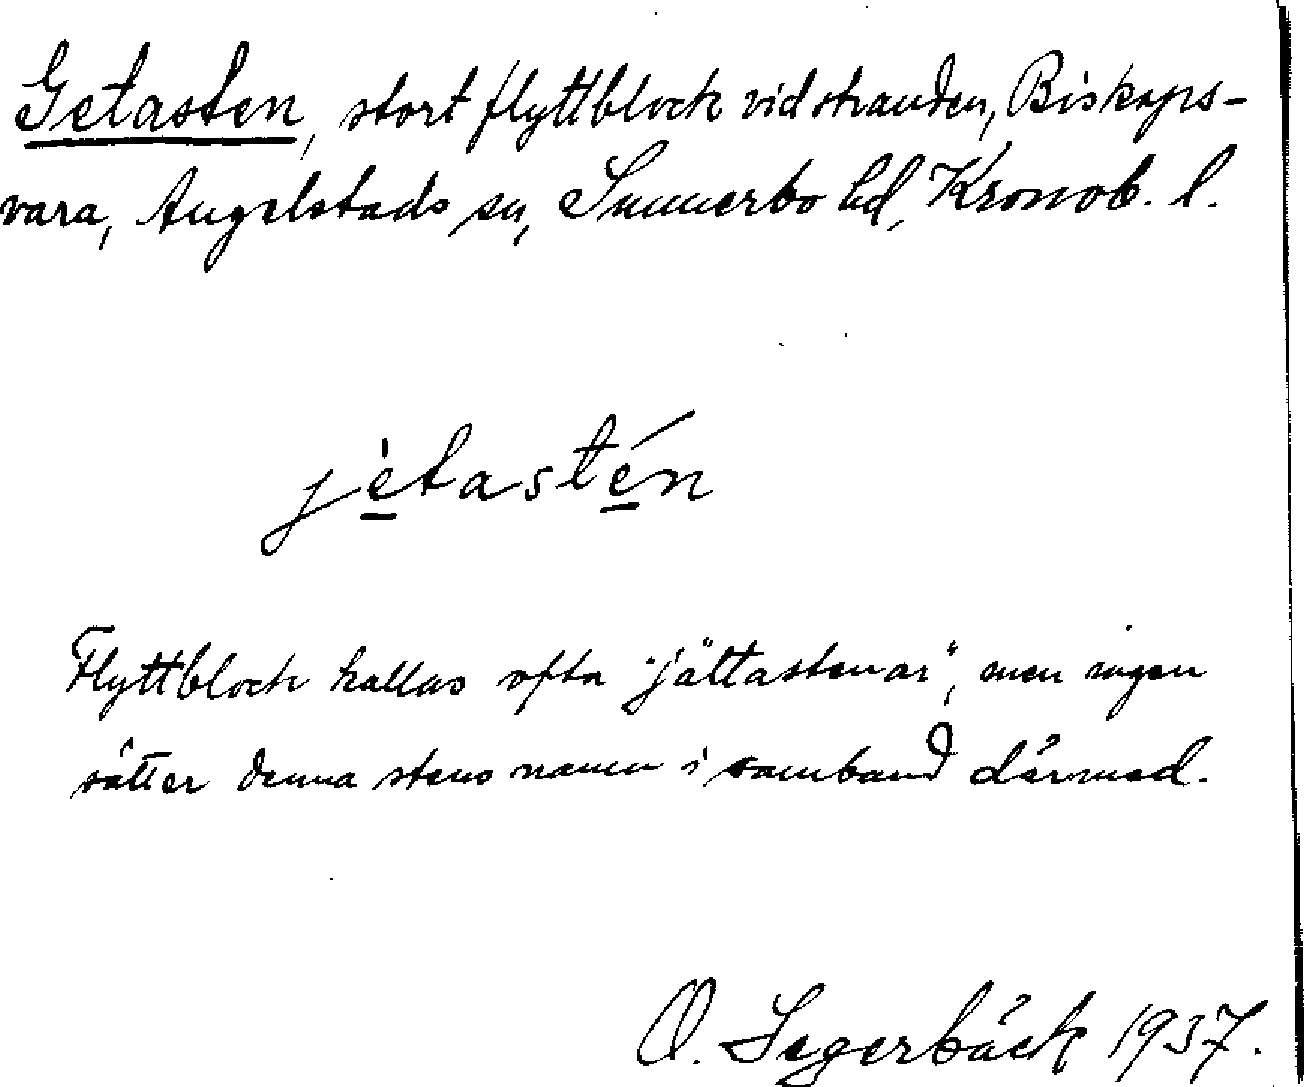 Getasten, stort flyttblock vid stranden, Biskops-
vara, Angelstads sn, Sunnerbo hd, Kronob. l.
jètastén
Flyttblock kallas ofta "jättastenar", men ingen
sätter denna stens namn i samband därmed.
O. Segerbäck 1937.